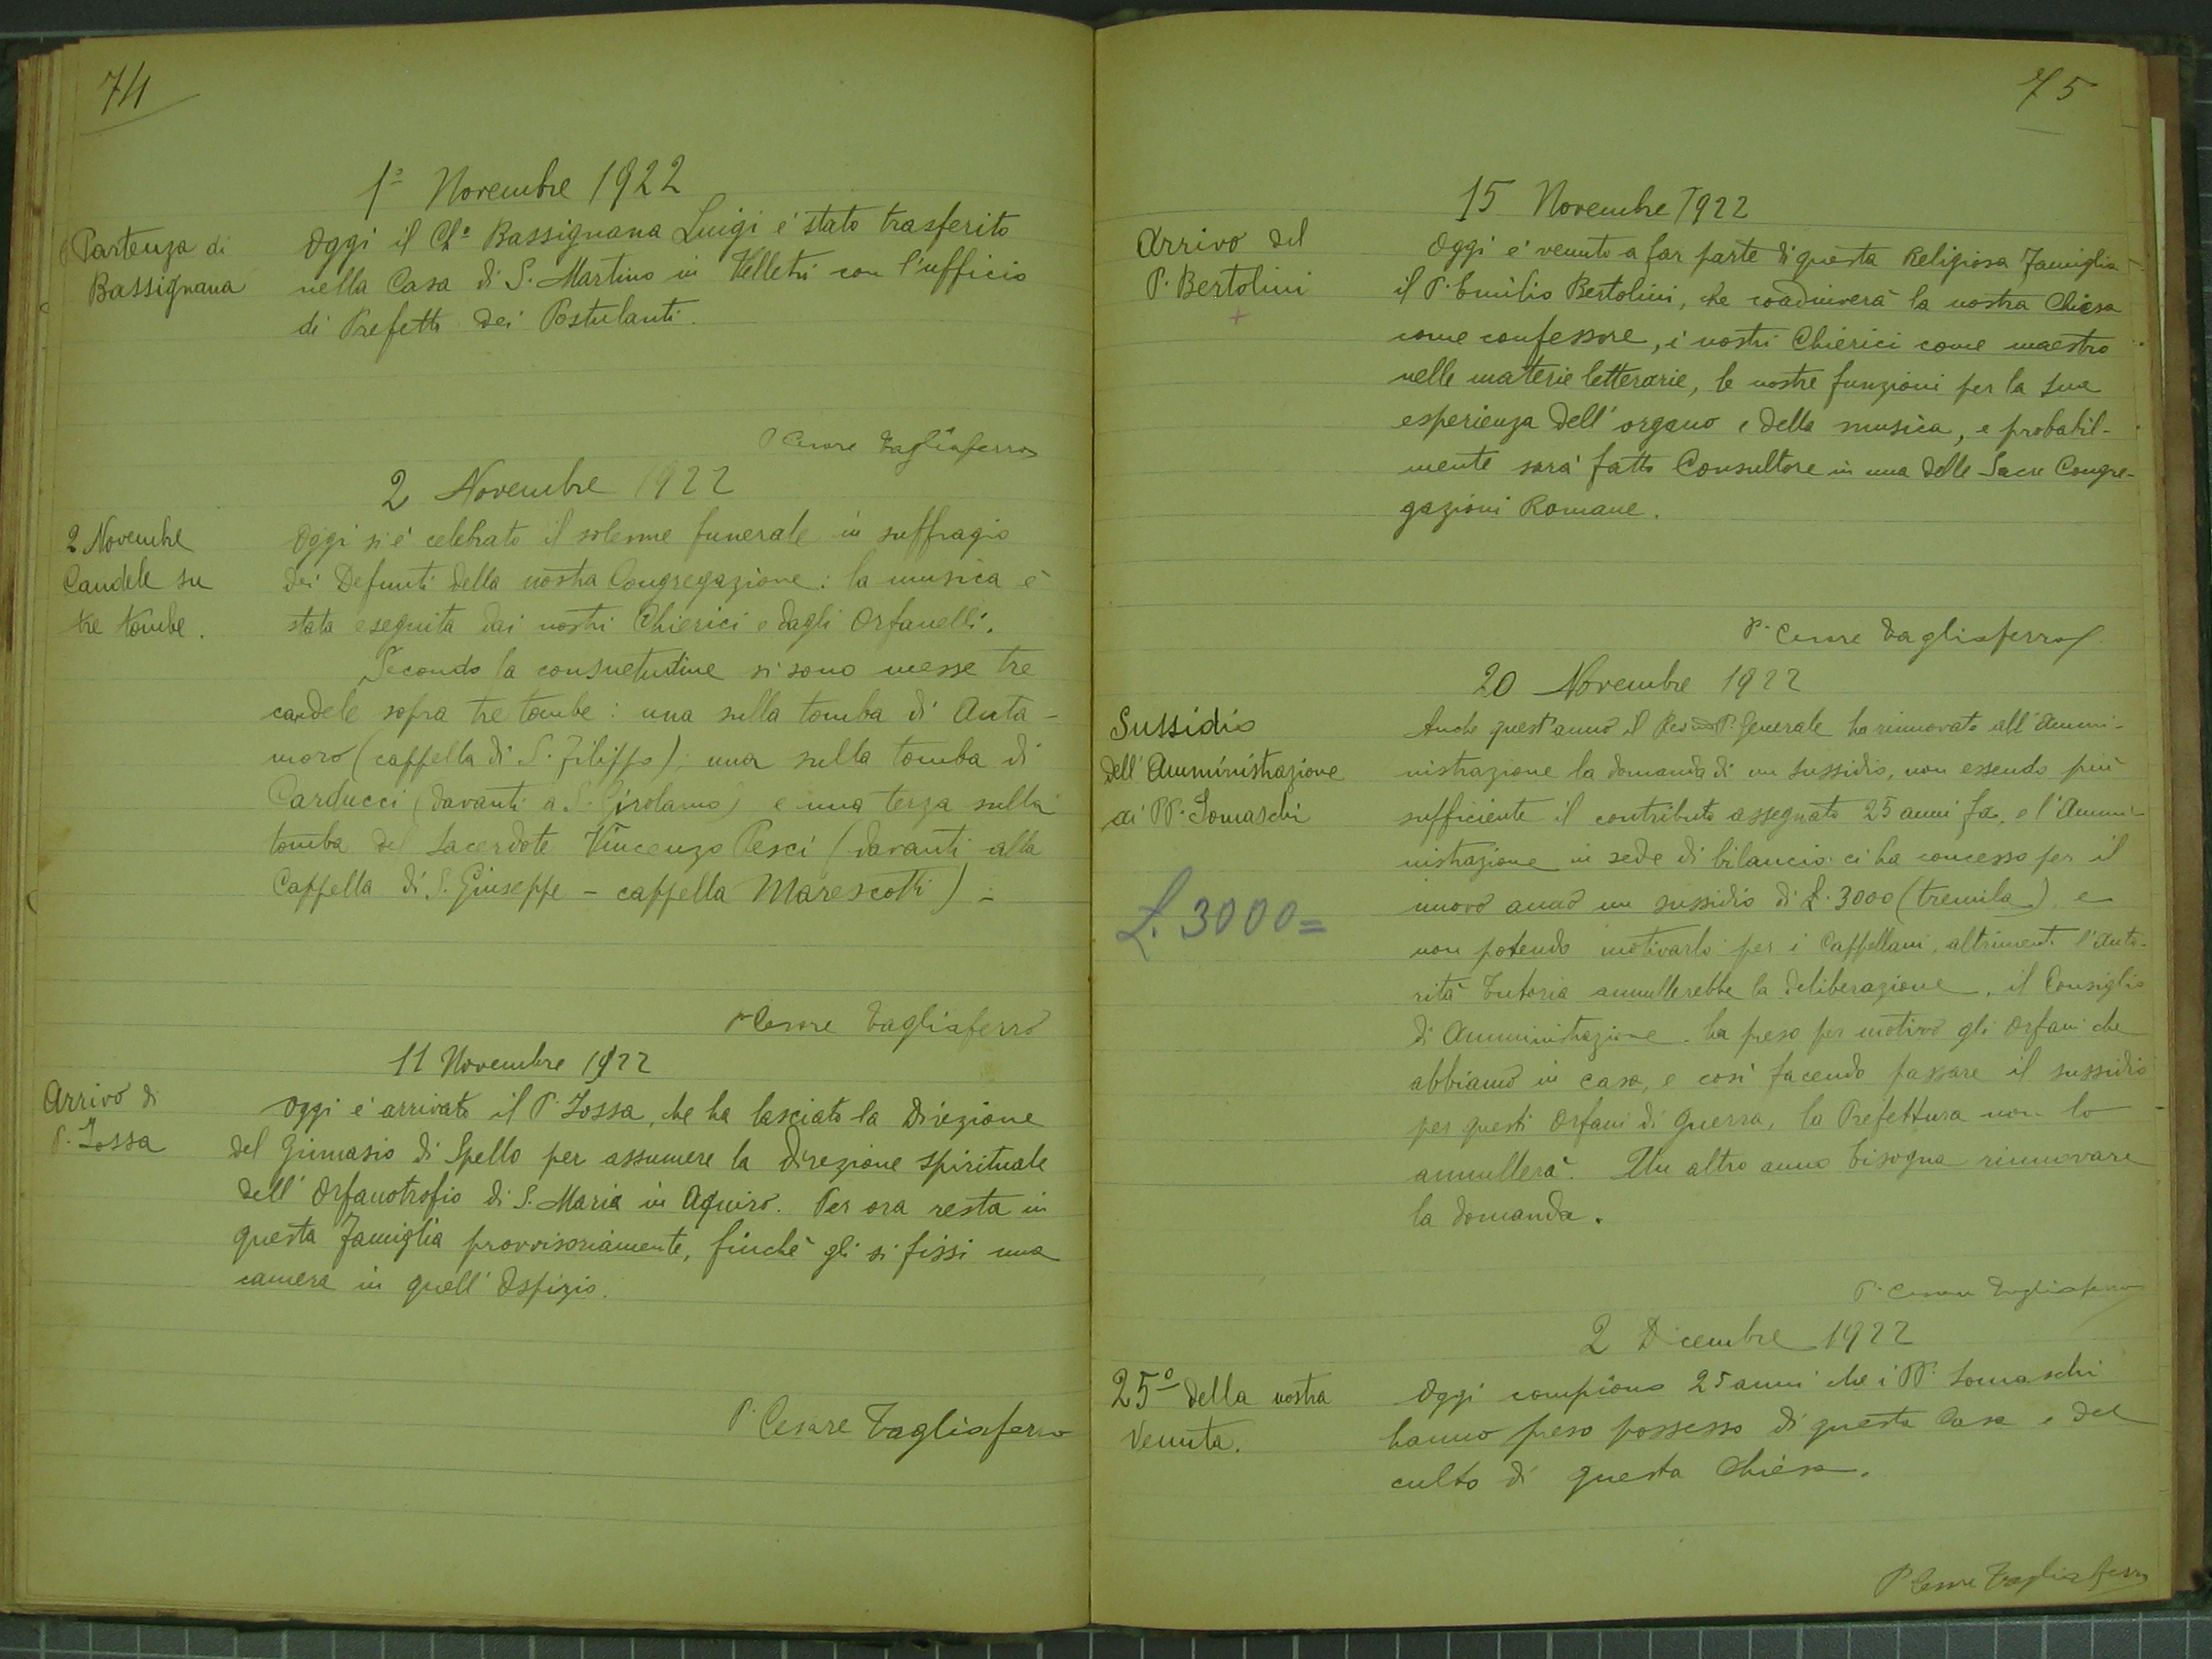 74
1º Novembre 1922
Partenza di
Bassignana
Oggi il Chº Bassignana Luigi é stato trasferito
nella Casa di S. Martino in Velletri con l'ufficio
di Prefetto dei Postulanti.
P Cesare Tagliaferro
2 Novembre 1922
2 Novembre
Candele su
tre tombe.
Oggi si é celebrato il solenne funerale in suffragio
dei Defunti della nostra Congregazione: la musica é
stata eseguita dai nostri Chierici e dagli Orfanelli.
Secondo la consuetudine si sono messe tre
candele sopra tre tombe: una sulla tomba di Anta-
moro (cappella di S. Filippo); una sulla tomba di
Carducci (davanti a S. Girolamo) e una terza sulla
tomba del Sacerdote Vincenzo Pesci (davanti alla
Cappella di S. Giuseppe - cappella Marescotti) -
P Cesare Tagliaferro
11 Novembre 1922
Arrivo di
P. Zossa
Oggi é arrivato il P. Zossa, che ha lasciato la Direzione
del Ginnasio di Spello per assumere la direzione spirituale
dell' Orfanotrofio di S. Maria in Aquiro. Per ora resta in
questa famiglia provvisoriamente, finché gli si fissi una
camera in quell' Ospizio.
P. Cesare Tagliaferro
75
15 Novembre 1922
Arrivo del
P. Bertolini
+
Oggi é venuto a far parte di questa Religiosa Famiglia
il P. Emilio Bertolini, che coadiuverà la nostra Chiesa
come confessore, i nostri Chierici come maestro
nelle materie letterarie, le nostre funzioni per la sua
esperienza dell' organo e della musica, e probabil-
mente sarà fatto Consultore in una delle Sacre Congre-
gazioni Romane.
P. Cesare Tagliaferro
20 Novembre 1922
Sussidio
dell' Amministrazione
ai PP. Somaschi
L. 3000=
Anche quest' anno il Rev.mo P. Generale ha rinnovato all' Ammi-
nistrazione la domanda di un sussidio, non essendo piu
sufficiente il contributo assegnato 25 anni fa, e l' Ammi-
nistrazione in sede di bilancio ci ha concesso per il
nuovo anno un sussidio di L. 3000 (tremila), e
non potendo motivarlo per i Cappellani, altrimenti l' Auto-
rità Tutoria annullerebbe la deliberazione, il Consiglio
di Amministrazione ha preso per motivo gli Orfani che
abbiamo in casa, e cosi facendo passare il sussidio
per questi Orfani di guerra, la Prefettura non lo
annullerà. Un altro anno bisogna rinnovare
la domanda.
P. Cesare Tagliaferro
2 Dicembre 1922
25º della nostra
venuta.
Oggi compiono 25 anni che i PP. Somaschi
hanno preso possesso di questa Casa e del
culto di questa Chiesa.
P Cesare Tagliaferro